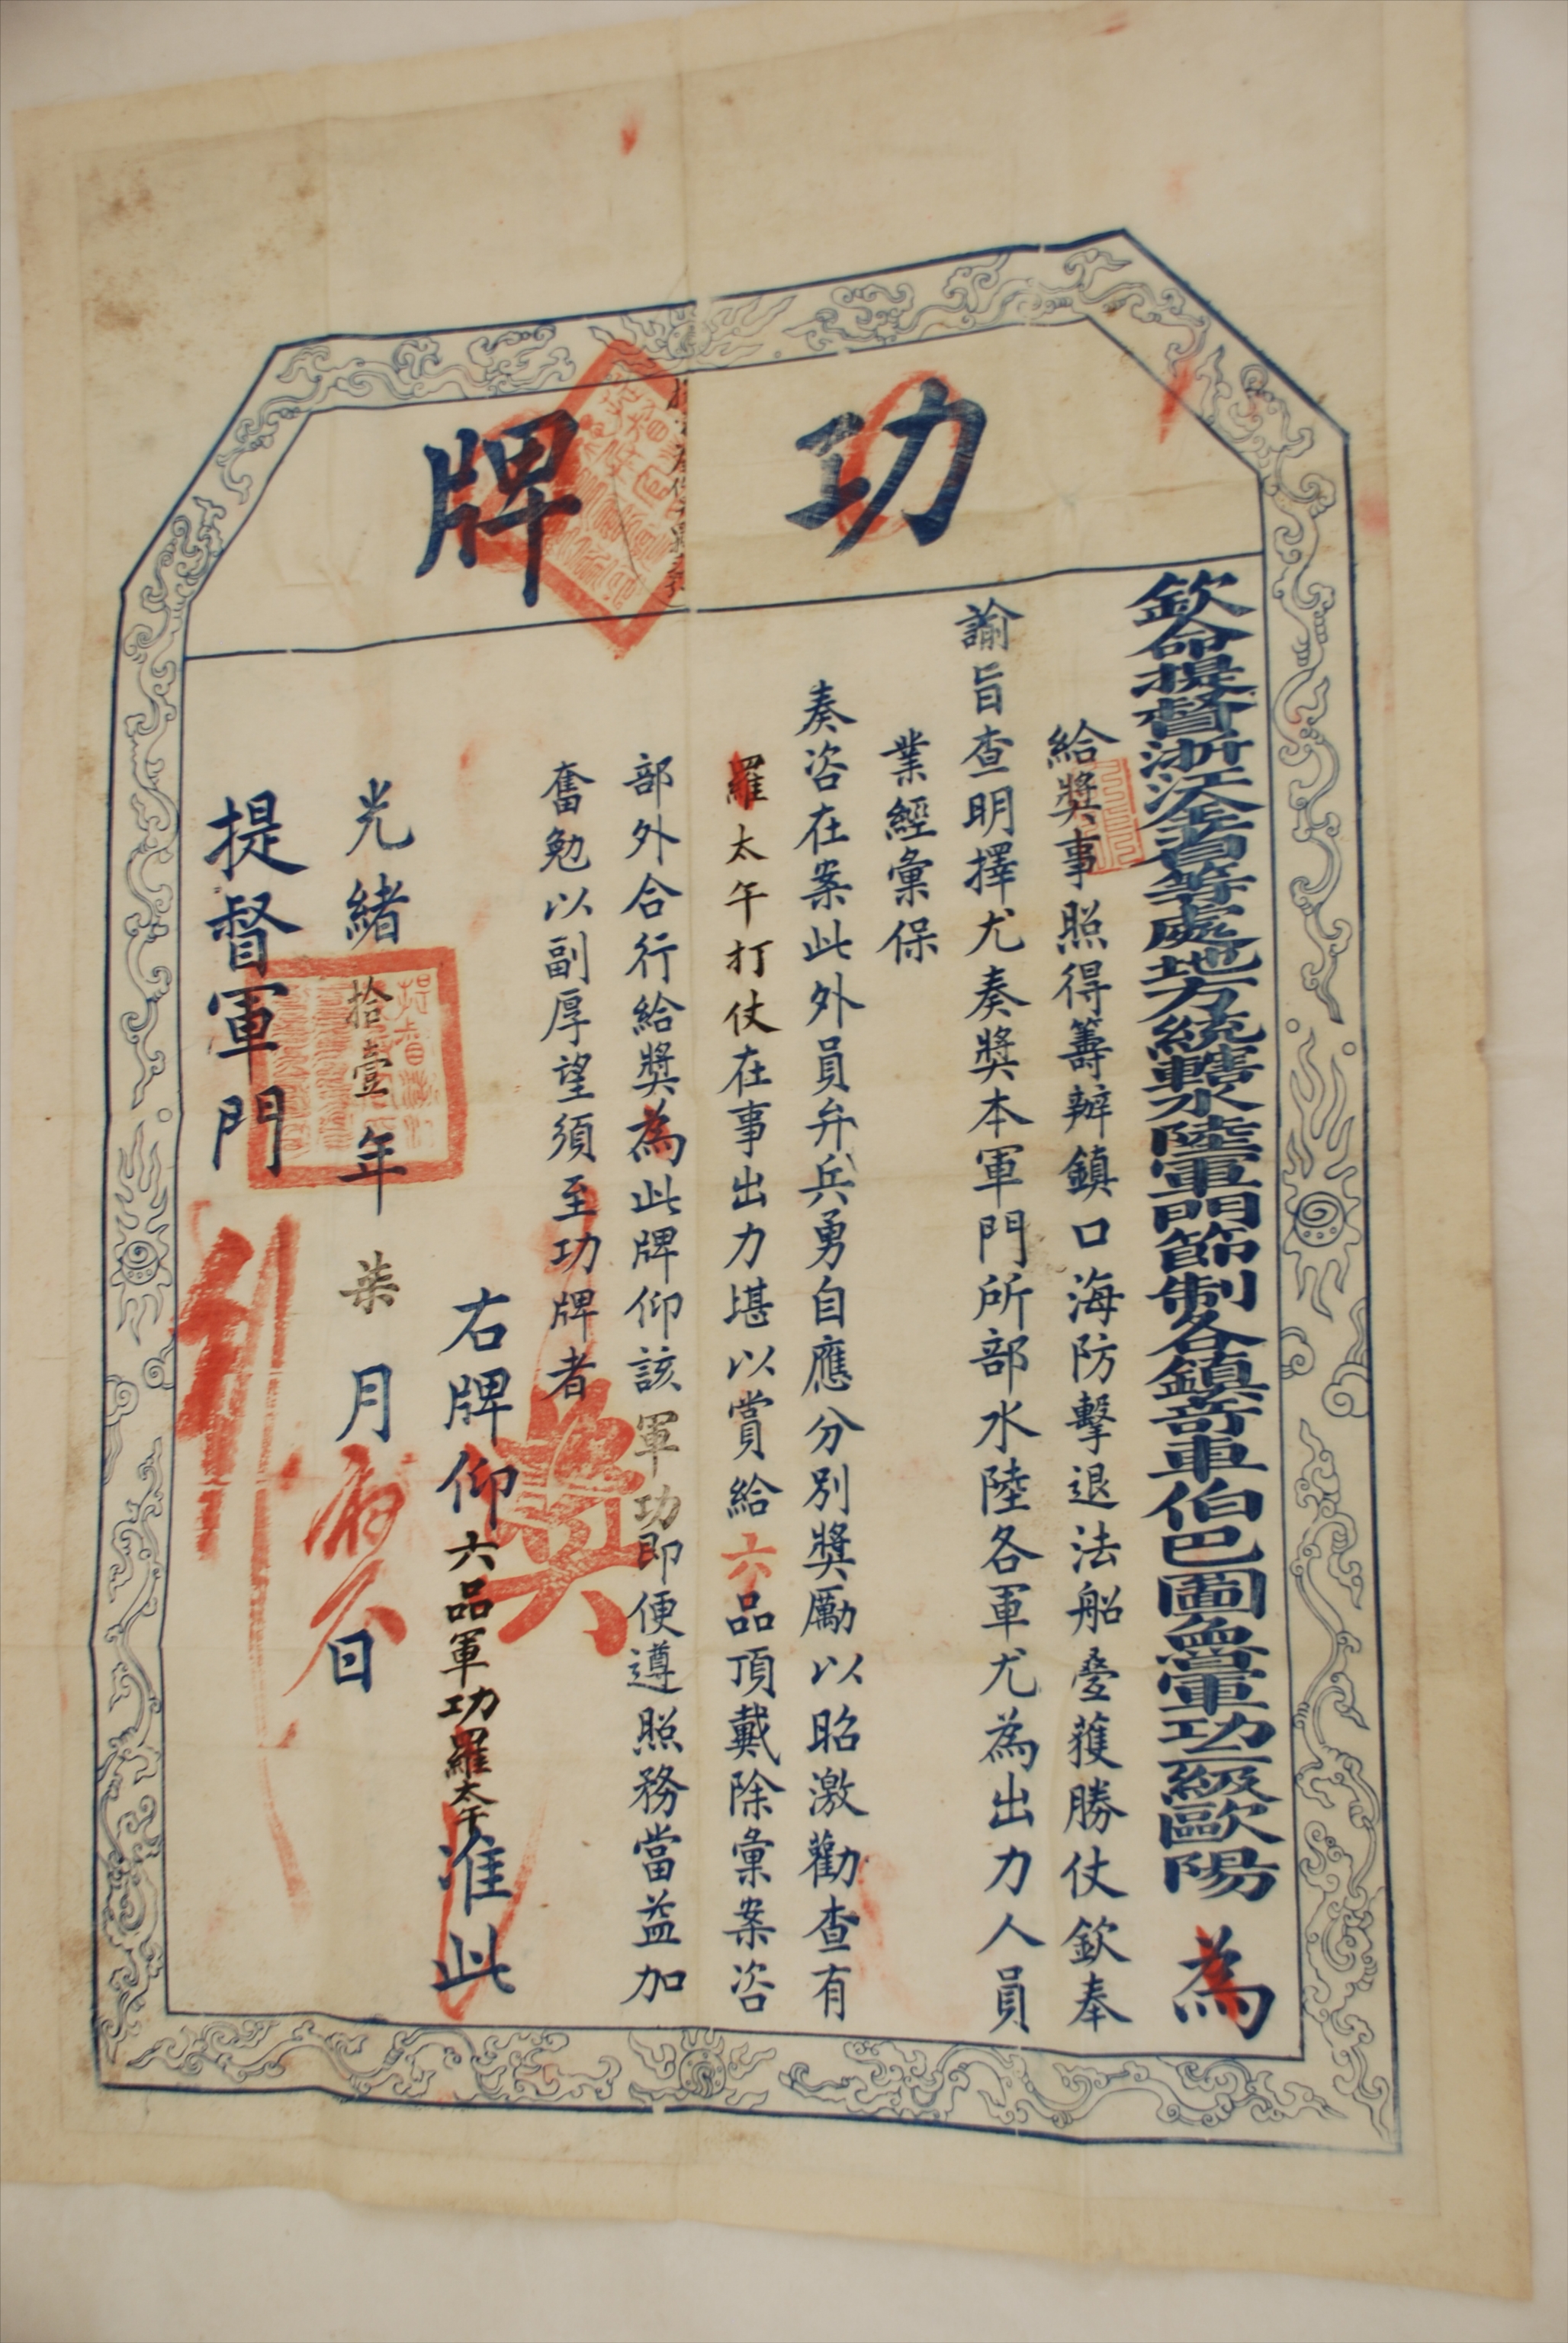 功牌
欽命提督浙江全省等處地方統轄水陸軍門節制各鎮奇車伯巴圖魯軍功一級歐陽 為
給獎事照得籌辦鎮口海防擊退法船疊獲勝仗欽奉
諭旨查明擇尤奏獎本軍門所部水陸各軍尤為出力人員
業經彙保
奏咨在案此外員弁兵勇自應分別獎勵以昭激勸查有
羅太午打仗在事出力堪以賞給六品頂戴除彙案咨
部外合行給獎為此牌仰該軍功即便遵照務當益加
奮勉以副厚望須至功牌者
右牌仰六品軍功羅太午准此
獎
光緒拾壹年柒月 日
提督軍門